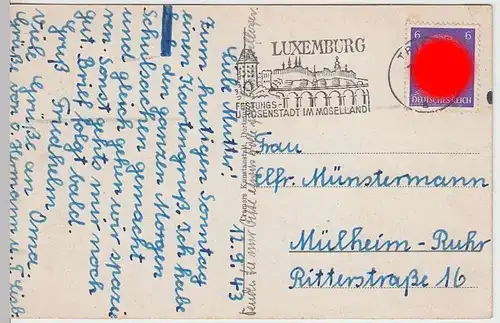 12.9.43
Liebe Mutter!
Zum heutigen Sonntag
einen Kartengruß. Ich habe
den ganzen Morgen
Schulsachen gemacht
und gleich gehen wir spazie-
ren. Sonst geht's mir noch
gut. Brief folgt bald.
Gruß Friedhelm
Viele Grüße an Oma.
Grüße von Hermann u. T.
LUXEMBURG
FESTUNGS-
ROSENSTADT IM MOSELLAND
6 6
DEUTSCHES REICH
Frau
Elfr. Münstermann
Mülheim-Ruhr
Ritterstraße 16